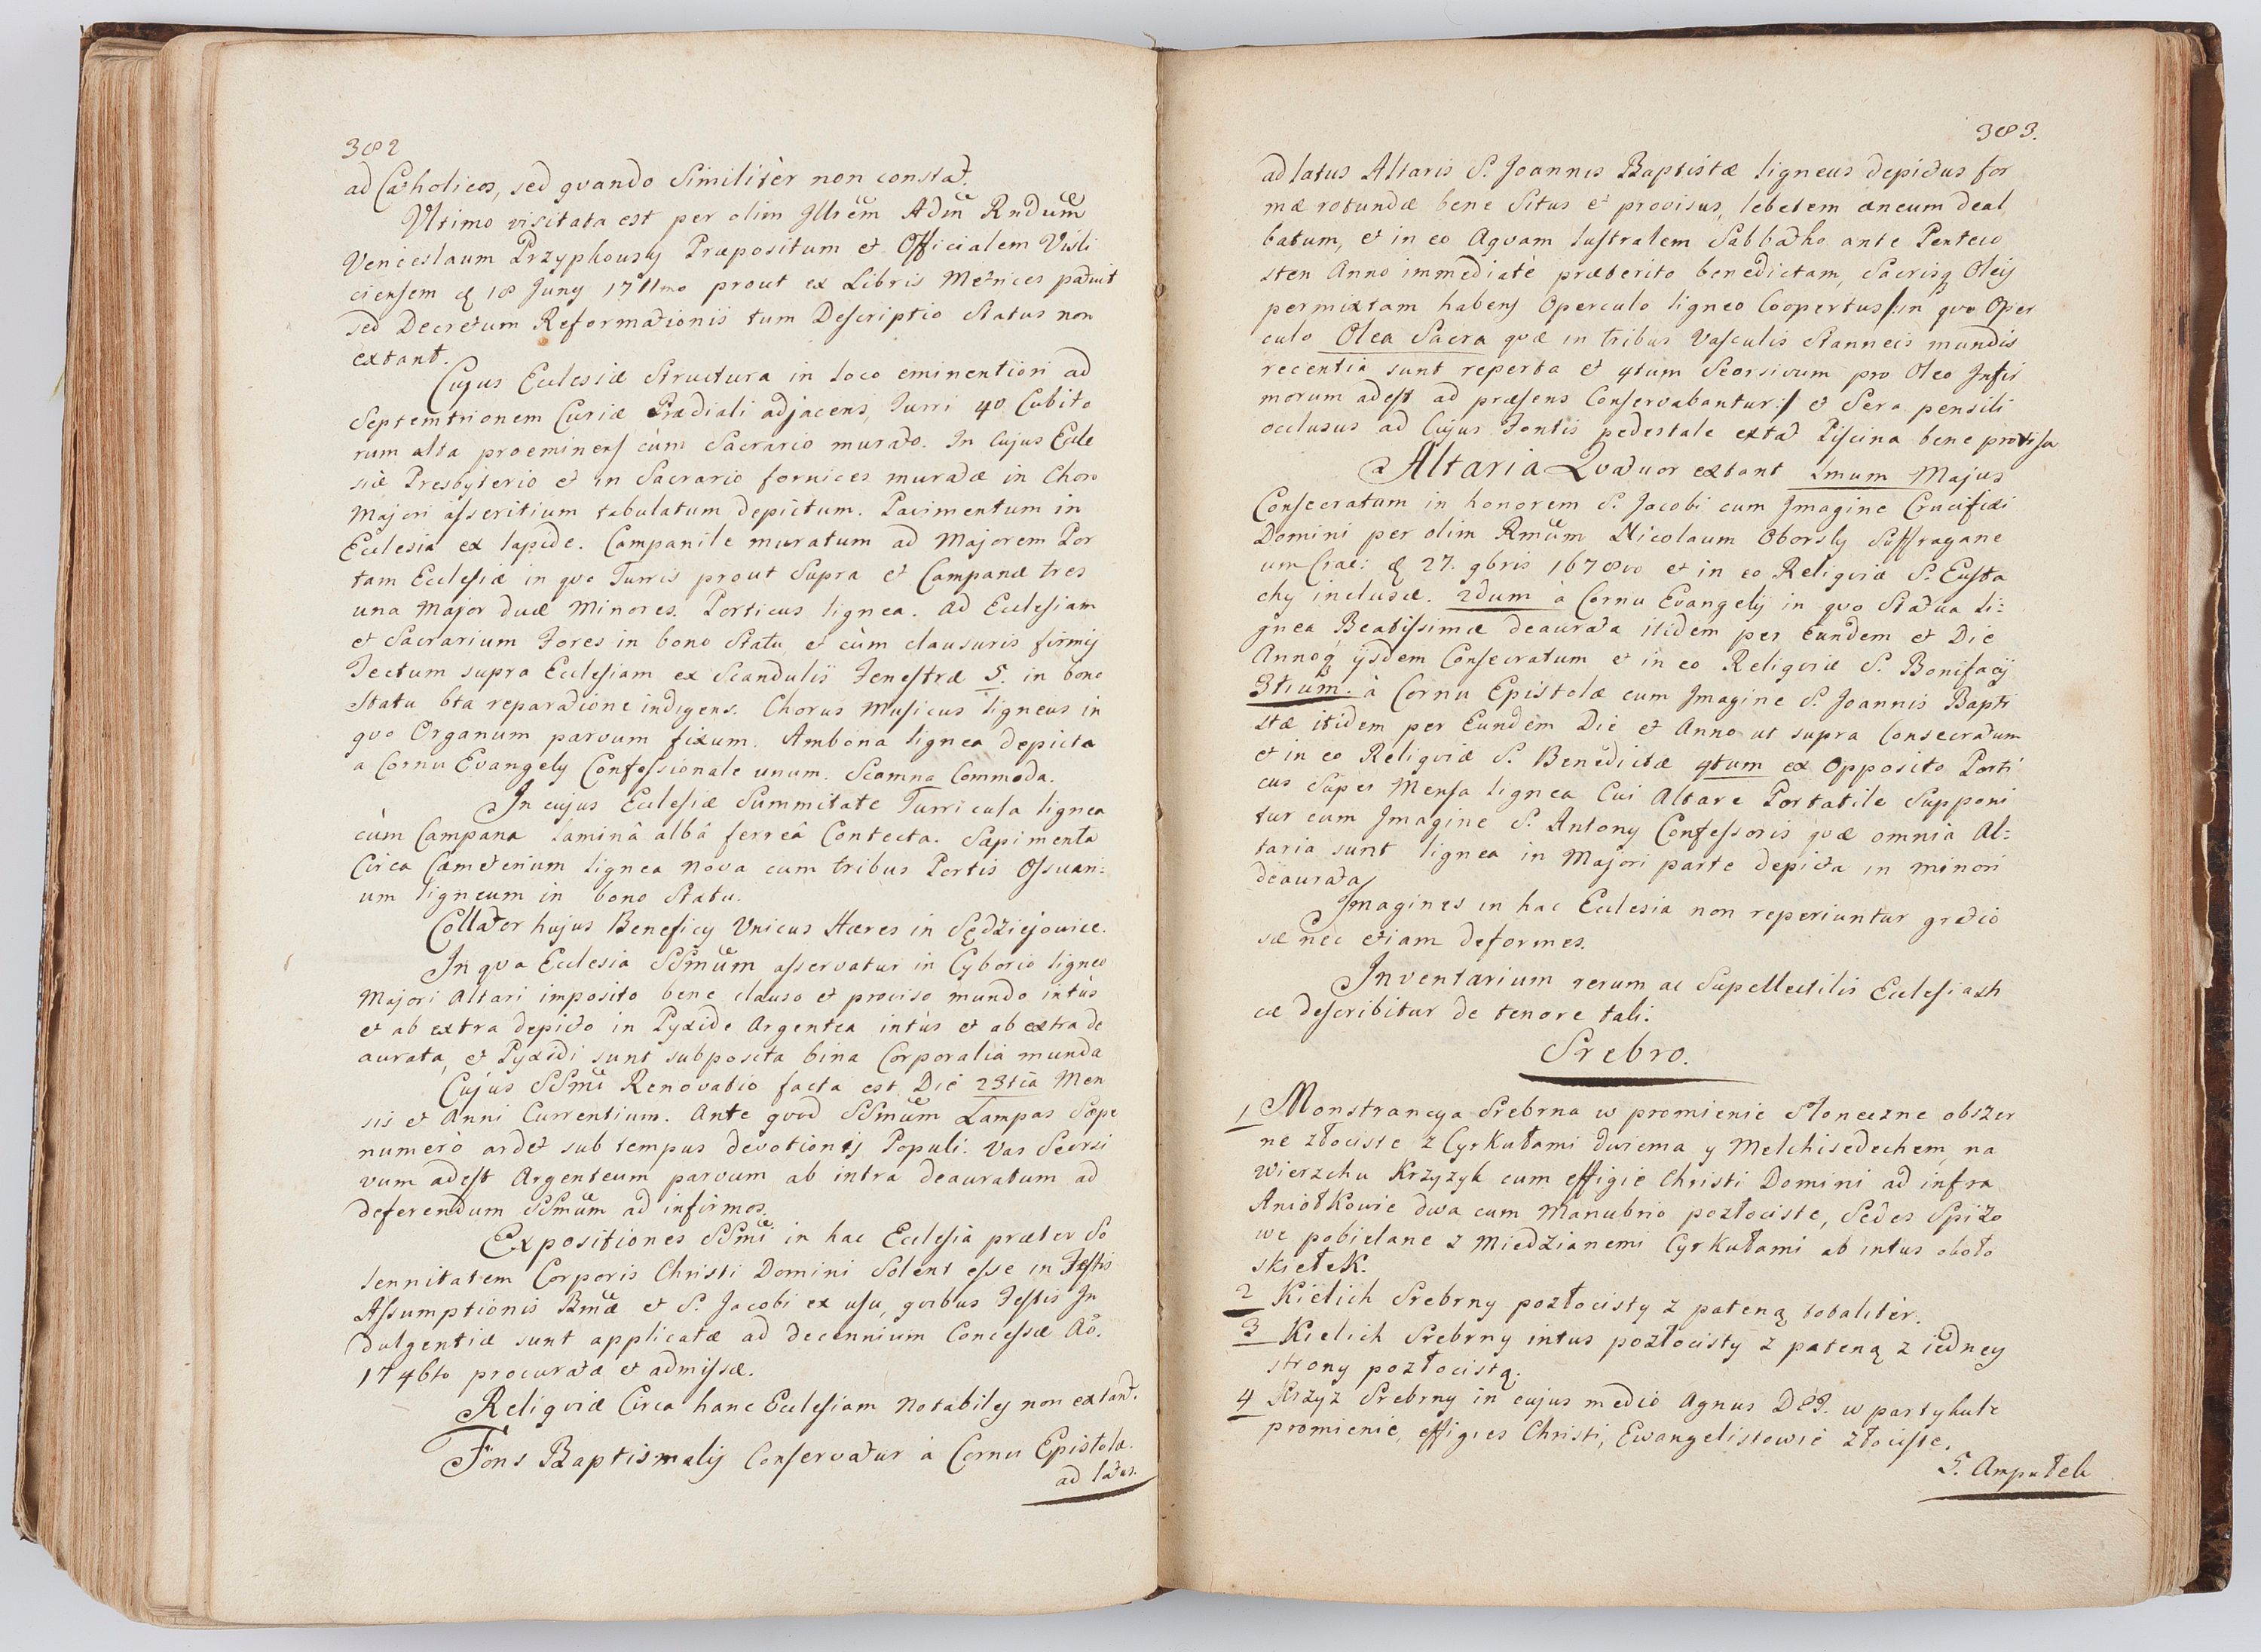 382
ad Catholicos, sed quando Similitèr non constat.
Ultimo visitata est per olim Illrem Adm Rndum
Venceslaum Przyphowsky Præpositum et Officialem Visli
ciensem 18 Juny 1711mo prout ex Libris Metrices patuit
sed Decretum Reformationis tum Descriptio Status non
extant.
Cujus Ecclesiæ Structura in loco eminentiori ad
Septemtrionem Curiæ Prædiali adjacens, Turri 40 Cubito
rum alta proeminens cùm Sacrario murato. In Cujus Eccle
siæ Presbyterio et in Sacrario fornices muratæ in Choro
Majori asseritium tabulatum depictum. Pavimentum in
Ecclesia ex lapide. Campanile muratum ad Majorem Por
tam Ecclesiæ in quo Turris prout Supra et Campanæ tres
una Major duæ Minores. Porticus lignea. Ad Ecclesiam
et Sacrarium Fores in bono Statu, et cùm clausuris firmis
Tectum supra Ecclesiam ex Scandulis Fenestræ 5. in bono
Statu bta reparatione indigens. Chorus Musicus ligneus in
quo Organum parvum fixum. Ambona lignea depicta
a Cornu Evangely Confessionale unum. Scamna Commoda.
In cujus Ecclesiæ Summitate Turricula lignea
cùm Campana laminâ albâ ferreâ Contecta. Sæpimenta
Circa Cæmeterium lignea nova cum tribus Portis Ossuari:
um ligneum in bono Statu.
Collator hujus Beneficy Unicus Hæres in Sędziejowice.
In qua Ecclesia SSmum asservatur in Cyborio ligneo
Majori Altari imposito bene clauso et proviso mundo intùs
et ab extra depicto in Pyxide Argentea intùs et ab extra de
aurata, et Pyxidi sunt subposita bina Corporalia munda
Cujus SSmi Renovatio facta est Die 23tia Men
sis et Anni Currentium. Ante quod SSmum Lampas Sæpe
numerò ardet sub tempus devotionis Populi. Vas Seorsi
vum adest Argenteum parvum ab intra deauratum ad
deferendum SSmum ad infirmos.
Expositiones SSmi in hac Ecclesia præter So
lennitatem Corporis Christi Domini Solent esse in Festis
Assumptionis Bmæ et S. Jacobi ex usu, quibus Festis In
dulgentiæ sunt applicatæ ad decennium Concessæ Ao.
1746to procuratæ et admissæ.
Reliquiæ Circa hanc Ecclesiam Notabiles non extant.
Fons Baptismalis Conservatur à Cornu Epistolæ.
ad latus.
383.
ad latus Altaris S. Joannis Baptistæ ligneus depictus for
mæ rotundæ bene Situs et provisus, lebetem æneum deal
batum, et in eo Aquam lustralem Sabbatho ante Penteco
sten Anno immediatè præterito benedictam, Sacrisq Oleis
permixtam habens Operculo ligneo Coopertus /:in quo Oper
culo Olea Sacra quæ in tribus Vasculis Stanneis mundis
recentia sunt reperta et 4tum Seorsivum pro Oleo Infir
morum adest ad præsens Conservabantur:/ et Sera pensili
occlusus ad Cujus Fontis pedestale extat Piscina bene provisa
Altaria Quatuor extant 1mum Majus
Consecratum in honorem S. Jacobi cum Imagine Crucifixi
Domini per olim Rmum Nicolaum Oborsky Suffragane
um Crac: 27. 9bris 1678vo et in eo Reliquiæ S. Eusta
chy inclusæ. 2dum à Cornu Evangelÿ in quo Statua li:
gnea Beatissimæ deaurata itidem per Eundem et Die
Annoq ijsdem Consecratum et in eo Reliquiæ S. Bonifacÿ
3tium. à Cornu Epistolæ cum Imagine S. Joannis Bapti
stæ itidem per Eundem Die et Anno ut supra Consecratum
et in eo Reliquiæ S. Benedictæ 4tum ex Opposito Porti
cus Super Mensa lignea Cui Altare Portatile Supponi
tur cum Imagine S. Antony Confessoris quæ omnia Al:
taria sunt lignea in Majori parte depicta in minori
deaurata
Imagines in hac Ecclesia non reperiuntur gratio
sæ nec etiam deformes.
Inventarium rerum ac Supellectilis Ecclesiasti
cæ describitur de tenore tali.
Srebro.
1 Monstrancya Srebrna w promienie słoneczne obszer
ne złociste z Cyrkułami dwiema y Melchisedechem, na
wierzchu Krzyzyk cum effigie Christi Domini ad infra
Aniołkowie dwa cum Manubrio pozłociste, Sedes Spiżo
we pobielane z Miedzianemi Cyrkułami ab intus około
skiełek.
2 Kielich Srebrny pozłocisty z pateną totalitèr.
3 Kielich Srebrny intus pozłocisty z pateną z iedney
strony pozłocistą.
4 Krzyz Srebrny in cujus medio Agnus DEI. w partykule
promienie, effigies Christi, Ewangelistowie złociste.
5. Ampułek